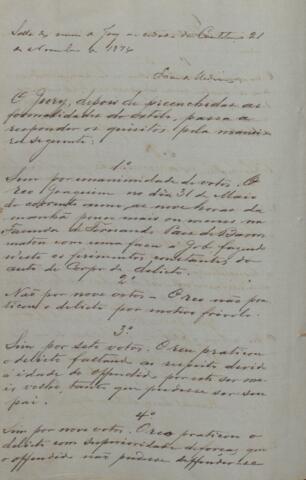 Salla das
do Jury
21
de Novembro de 1874
O Jury, depois de preenchidas as
formalidades do estilo, passa a
responder os quisitos pela manei-
ra seguinte:
1º
Sim por unanimidade de votos. O
reo Joaquim no dia 31 de Maio
do corrente anno, as nove horas da
manhã pouco mais ou menos na
Fazenda de Fernando Paes de Barros
matou com uma faca a Job fazendo
neste os ferimentos constantes do
auto de Corpo de delicto.
2º
Não por nove votos – O reo não pra-
ticou o delicto por motivo frivolo.
3º
Sim por sete votos. O reo praticou
o delicto faltando ao respeito devido
a idade do offendido por este ser ma-
is velho, tanto que podesse ser seu
pai.
4º
Sim por nove votos. O reo praticou o
delicto com superioridade de forças, que
o offendido não podesse deffender-se